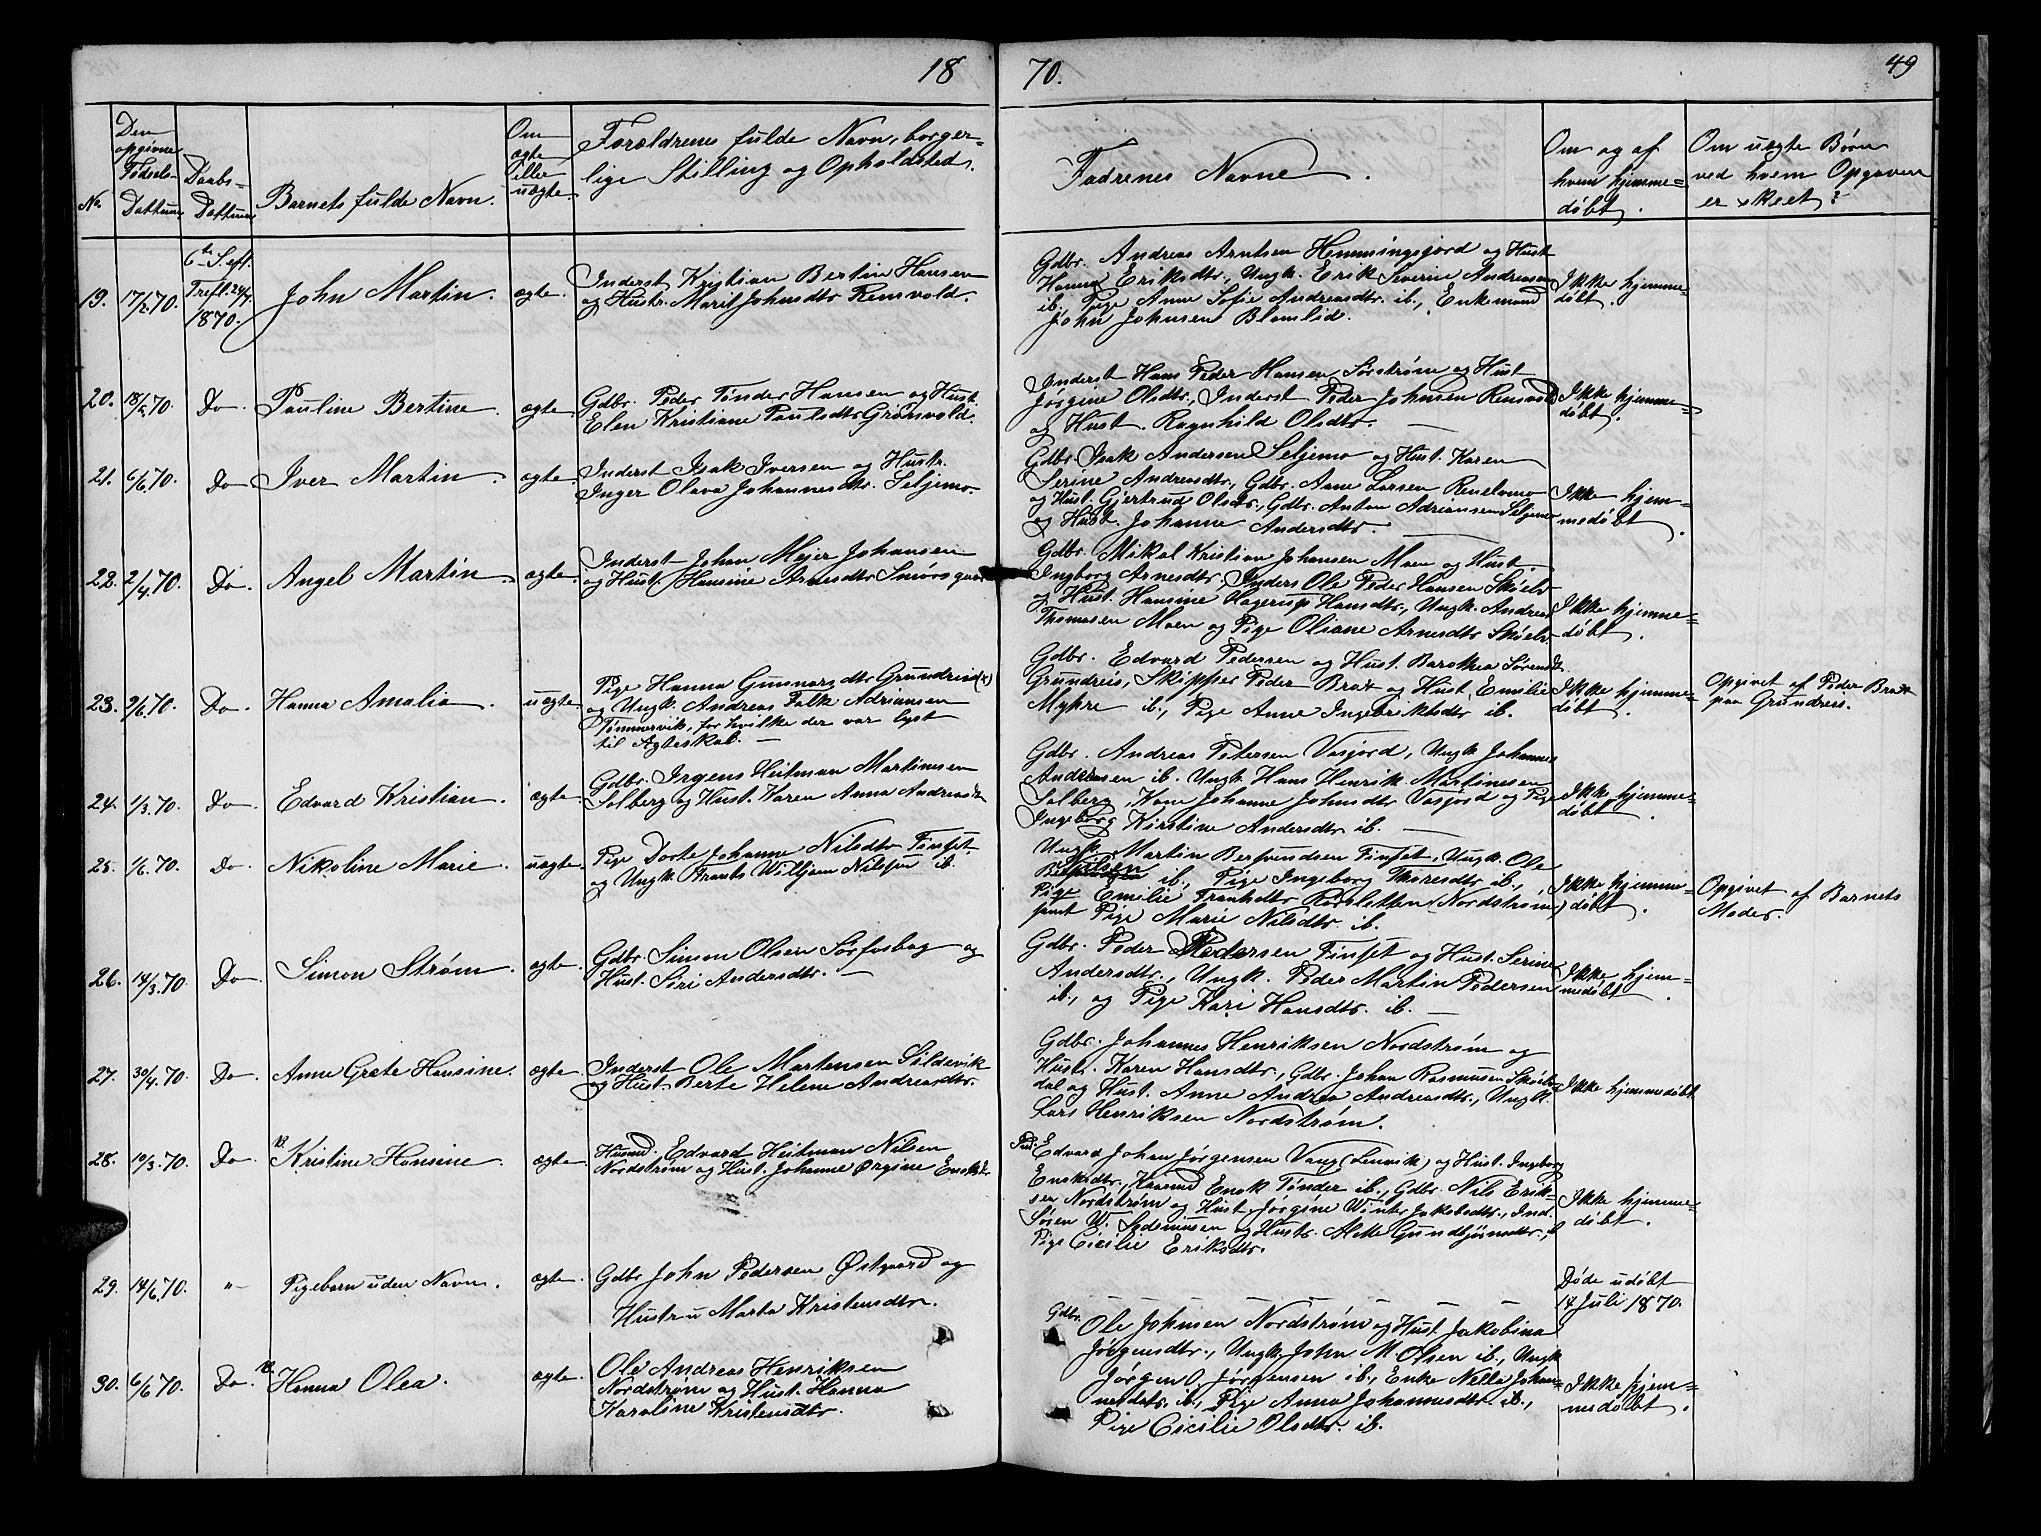 18
70.
49
No.
Den opgivne Fødsels-Dattum
Daabs-Dattum
Barnets fulde Navn.
Om ægte eller uægte.
Forældrenes fulde Navn, borger-
lige Stilling og Opholdsted.
Faddrenes Navne.
Om og af
hvem hjemme=
døbt.
Om uægte Børn
ved hvem Opgaven
er skeet?
19. 17/2.70.
6te S. eft.
Tref. 24/7.
1870.
John Martin. ægte.
Inderst Kristian Bertin Hansen
og Hustr. Marit Johnsdtr Rensvold.
Gdbr. Andreas Arntsen Hemmingsjord og Hust
Hanna Eriksdtr, Ungk. Erik Severin Andreasen
ib. Pige Anne Sofie Andreasdtr. ib., Enkemand
John Johnsen Blomlid.
Ikke hjemme=
døbt.
20. 18/5.70. Do. Pauline Bertine. ægte.
Gdbr. Peder Tønder Hansen og Hust.
Elen Kristiane Paulsdtr Grønvold.
Inderst Hans Peder Hansen Sørstrøm og Hust
Jørgine Olsdtr, Inderst Peder Johnsen Rensvold
og Hust. Ragnhild Olsdtr.
Ikke hjemme=
døbt.
21. 6/6.70. Do Iver Martin. ægte.
Inderst Isak Iversen og Hustr.
Inger Olava Johannesdtr. Seljemo.
Gdbr. Isak Andersen Seljemo og Hust. Karen
Serine Andreasdtr, Gdbr. Arne Larsen Renelvmo
og Hust. Gjertrud Olsdtr, Gdbr. Anton Adriansen Seljemo
og Hust. Johanne Andersdtr.
Ikke hjem=
medøbt.
22. 2/4.70. Do. Angel Martin. ægte.
Inderst Johan Mejer Johansen
og Hust. Hansine Arnesdtr Smörsgaard
Gdbr. Mikal Kristian Johansen Moen og Hust.
Ingborg Arnesdtr, Inders Ole Peder Hansen Skøelv
og Hust. Hansine Hagerups Hansdtr., Ungk. Andreas
Thomasen Moen og Pige Oliane Arnesdtr Skøelv
Ikke hjemme=
døbt.
23. 9/6.70. Do. Hanna Amalia. uægte.
Pige Hanna Gunnarsdtr Grundreis(?)
og Ungk. Andreas Falk Adriansen
Tømmervik, for hvilke der var lyst
til Ægteskab.
Gdbr. Edvard Pedersen og Hust. Barothea Sørensdtr
Grundreis, Skipper Peder Brox og Hust. Emilie
Myhre ib., Pige Anne Ingebriktsdtr ib.
Ikke hjemme=
døbt.
Opgivet af Peder Brox
paa Grundreis.
24. 1/3.70. Do. Edvard Kristian. ægte.
Gdbr. Irgens Heitman Martinusen
Solberg og Hust. Karen Anna Andreasdtr
Gdbr. Andreas Petersen Vasjord, Ungk Johannes
Andreasen ib. Ungk Hans Henrik Martinusen
Solberg, Kone Johanne Johnsdtr Vasjord og Pige
Ingeborg Kirstine Andersdtr. ib.
Ikke hjemme=
døbt.
25. 1/6.70. Do. Nikoline Marie. uægte.
Pige Dorte Johanne Nilsdtr Finset
og Ungk Frants Willjam Nilsen ib.
Ungk. Martin Bersvendsen Finset, Ungk. Ole
Nilsen ib., Pige Ingeborg Thoresdtr ib.,
Pige Emilie Frantsdtr Rossletten (Nordstrøm)
samt Pige Marie Nilsdtr. ib.
Ikke hjemme=
døbt.
Opgivet af Barnets
Moder.
26. 14/3.70. Do. Simon Strøm. ægte.
Gdbr. Simon Olsen Sørfosbag og
Hust. Siri Andersdtr.
Gdbr. Peder Pedersen Finset og Hust. Serine
Andersdtr., Ungk. Peder Martin Pedersen
ib., og Pige Kari Hansdtr. ib.
Ikke hjem=
medøbt.
27. 30/4.70. Do. Anne Grete Hansine. ægte.
Inderst Ole Martensen Sildevik
og Hust. Berte Helene Andreasdtr.
Gdbr. Johannes Henriksen Nordstrøm og
Hust. Karen Hansdtr., Gdbr. Johan Rasmusen Skøelv=
dal og Hust. Anne Andrea Andreasdtr., Ungk.
Lars Henriksen Nordstrøm.
Ikke hjemmedøbt
28. 10/3.70. Do. Kristine Hansine. ægte.
Husmd. Edvard Heitman Nilsen
Nordstrøm og Hust. Johanne Ørgine Enoksdtr.
Edvard Johan Jørgensen Vang (Lenvik) og Hust. Ingeborg
Enoksdtr., Kaarmd Enok Tønder ib., Gdbr. Nils Erik=
sen Nordstrøm og Hust. Jørgine Winter Jakobsdtr., Ind.
Søren W. Sidenisen og Hustr. Mette Gundbjørnsdtr., &
Pige Cicilie Eriksdtr.
Ikke hjemme=
døbt.
29. 14/6.70. " Pigebarn uden Navn. ægte.
Gdbr John Pedersen Østgaard og
Hustru Marta Kristensdtr.
Døde udøbt
14 Juli 1870.
30. 6/6 70. Do. Hanna Olea. ægte.
Ole Andreas Henriksen
Nordstrøm og Hust. Hanna
Karoline Kristensdtr.
Gdbr.
Ole Johnsen Nordstrøm og Hust Jakobina
Jørgensdtr., Ungk. John M. Olsen ib., Ungk
Jørgen O. Jørgensen ib., Enke Nella Johan=
nesdatr. ib., Pige Anna Johannesdtr. ib.,
Pige Cicilie Olsdtr. ib.
Ikke hjem=
medøbt.